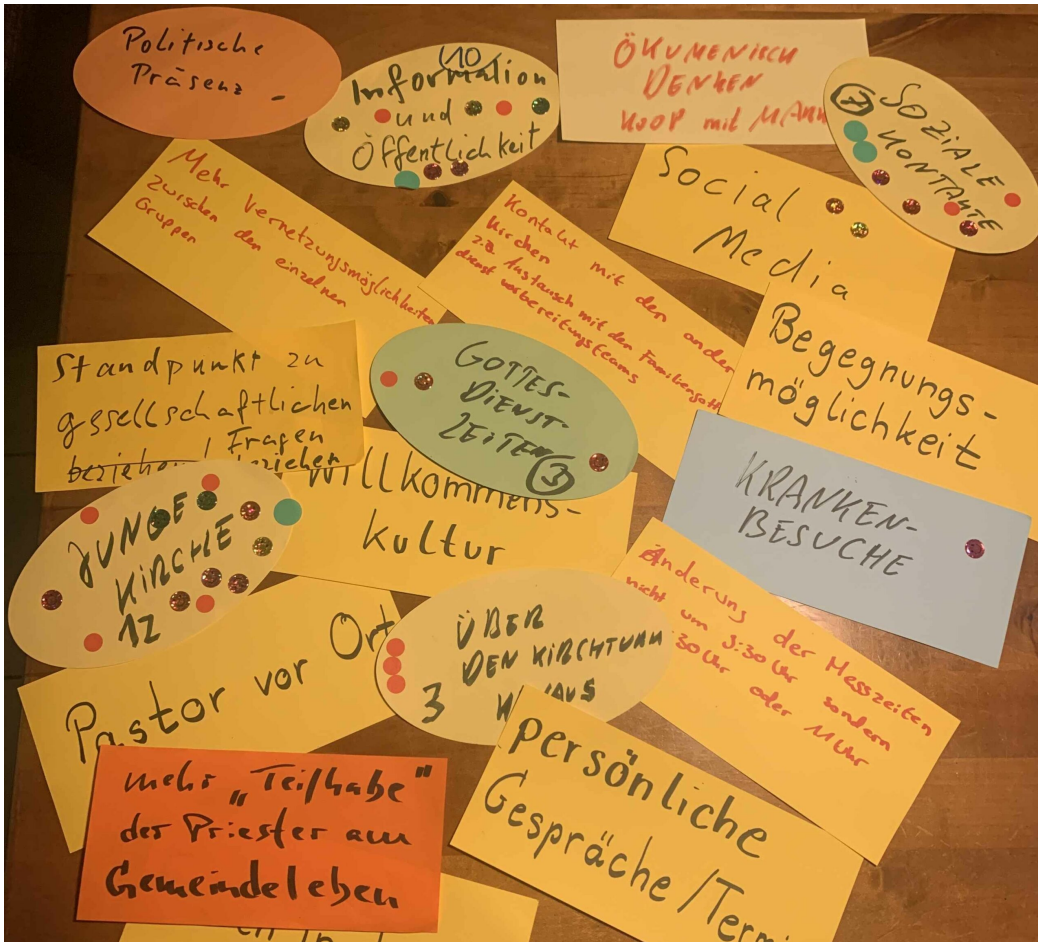 Politische
Präsenz
(10)
Information
und
Öffentlichkeit
ÖKUMENISCH
DENKEN
KOOP mit
7
SOZIALE
KONTAKTE
Mehr Vernetzungsmöglichkeiten
zwischen den einzelnen
Gruppen
Kontakt mit den ander
Kirchen
z.B. Austausch mit den Familiengott
dienst vorbereitungsteams
Social
Media
Standpunkt zu
gesellschaftlichen
Fragen
beziehen
GOTTES-
DIENST-
ZEITEN 3
Begegnungs-
möglichkeit
Willkommens-
kultur
KRANKEN-
BESUCHE
JUNGE
KIRCHE
12
Pastor vor Ort
ÜBER
DEN KIRCHTURM
3
Änderung der Messzeiten
nicht um 9:30 Uhr sondern
:30 Uhr oder 11 Uhr
mehr „Teilhabe"
der Priester am
Gemeindeleben
persönliche
Gespräche/Termi